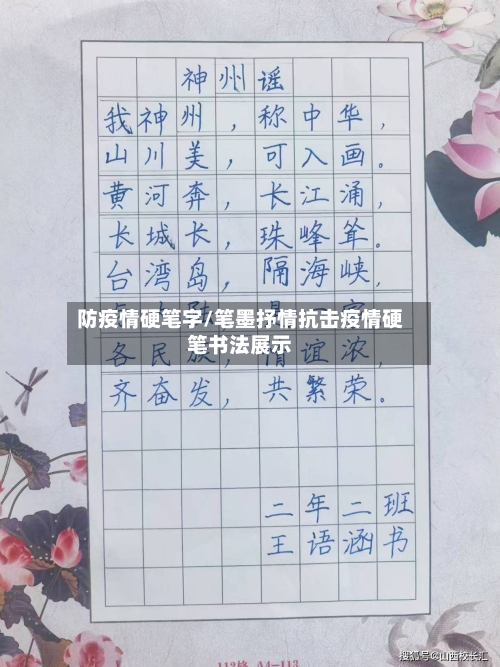 神州谣
我神州，称中华，
山川美，可入画。
黄河奔，长江涌，
长城长，珠峰耸。
台湾岛，隔海峡，
防疫情硬笔字/笔墨抒情抗击疫情硬
笔书法展示
各民族，情谊浓，
齐奋发，共繁荣。
二年二班
王语涵书
112格 A4-113
搜狐号@山西校长汇